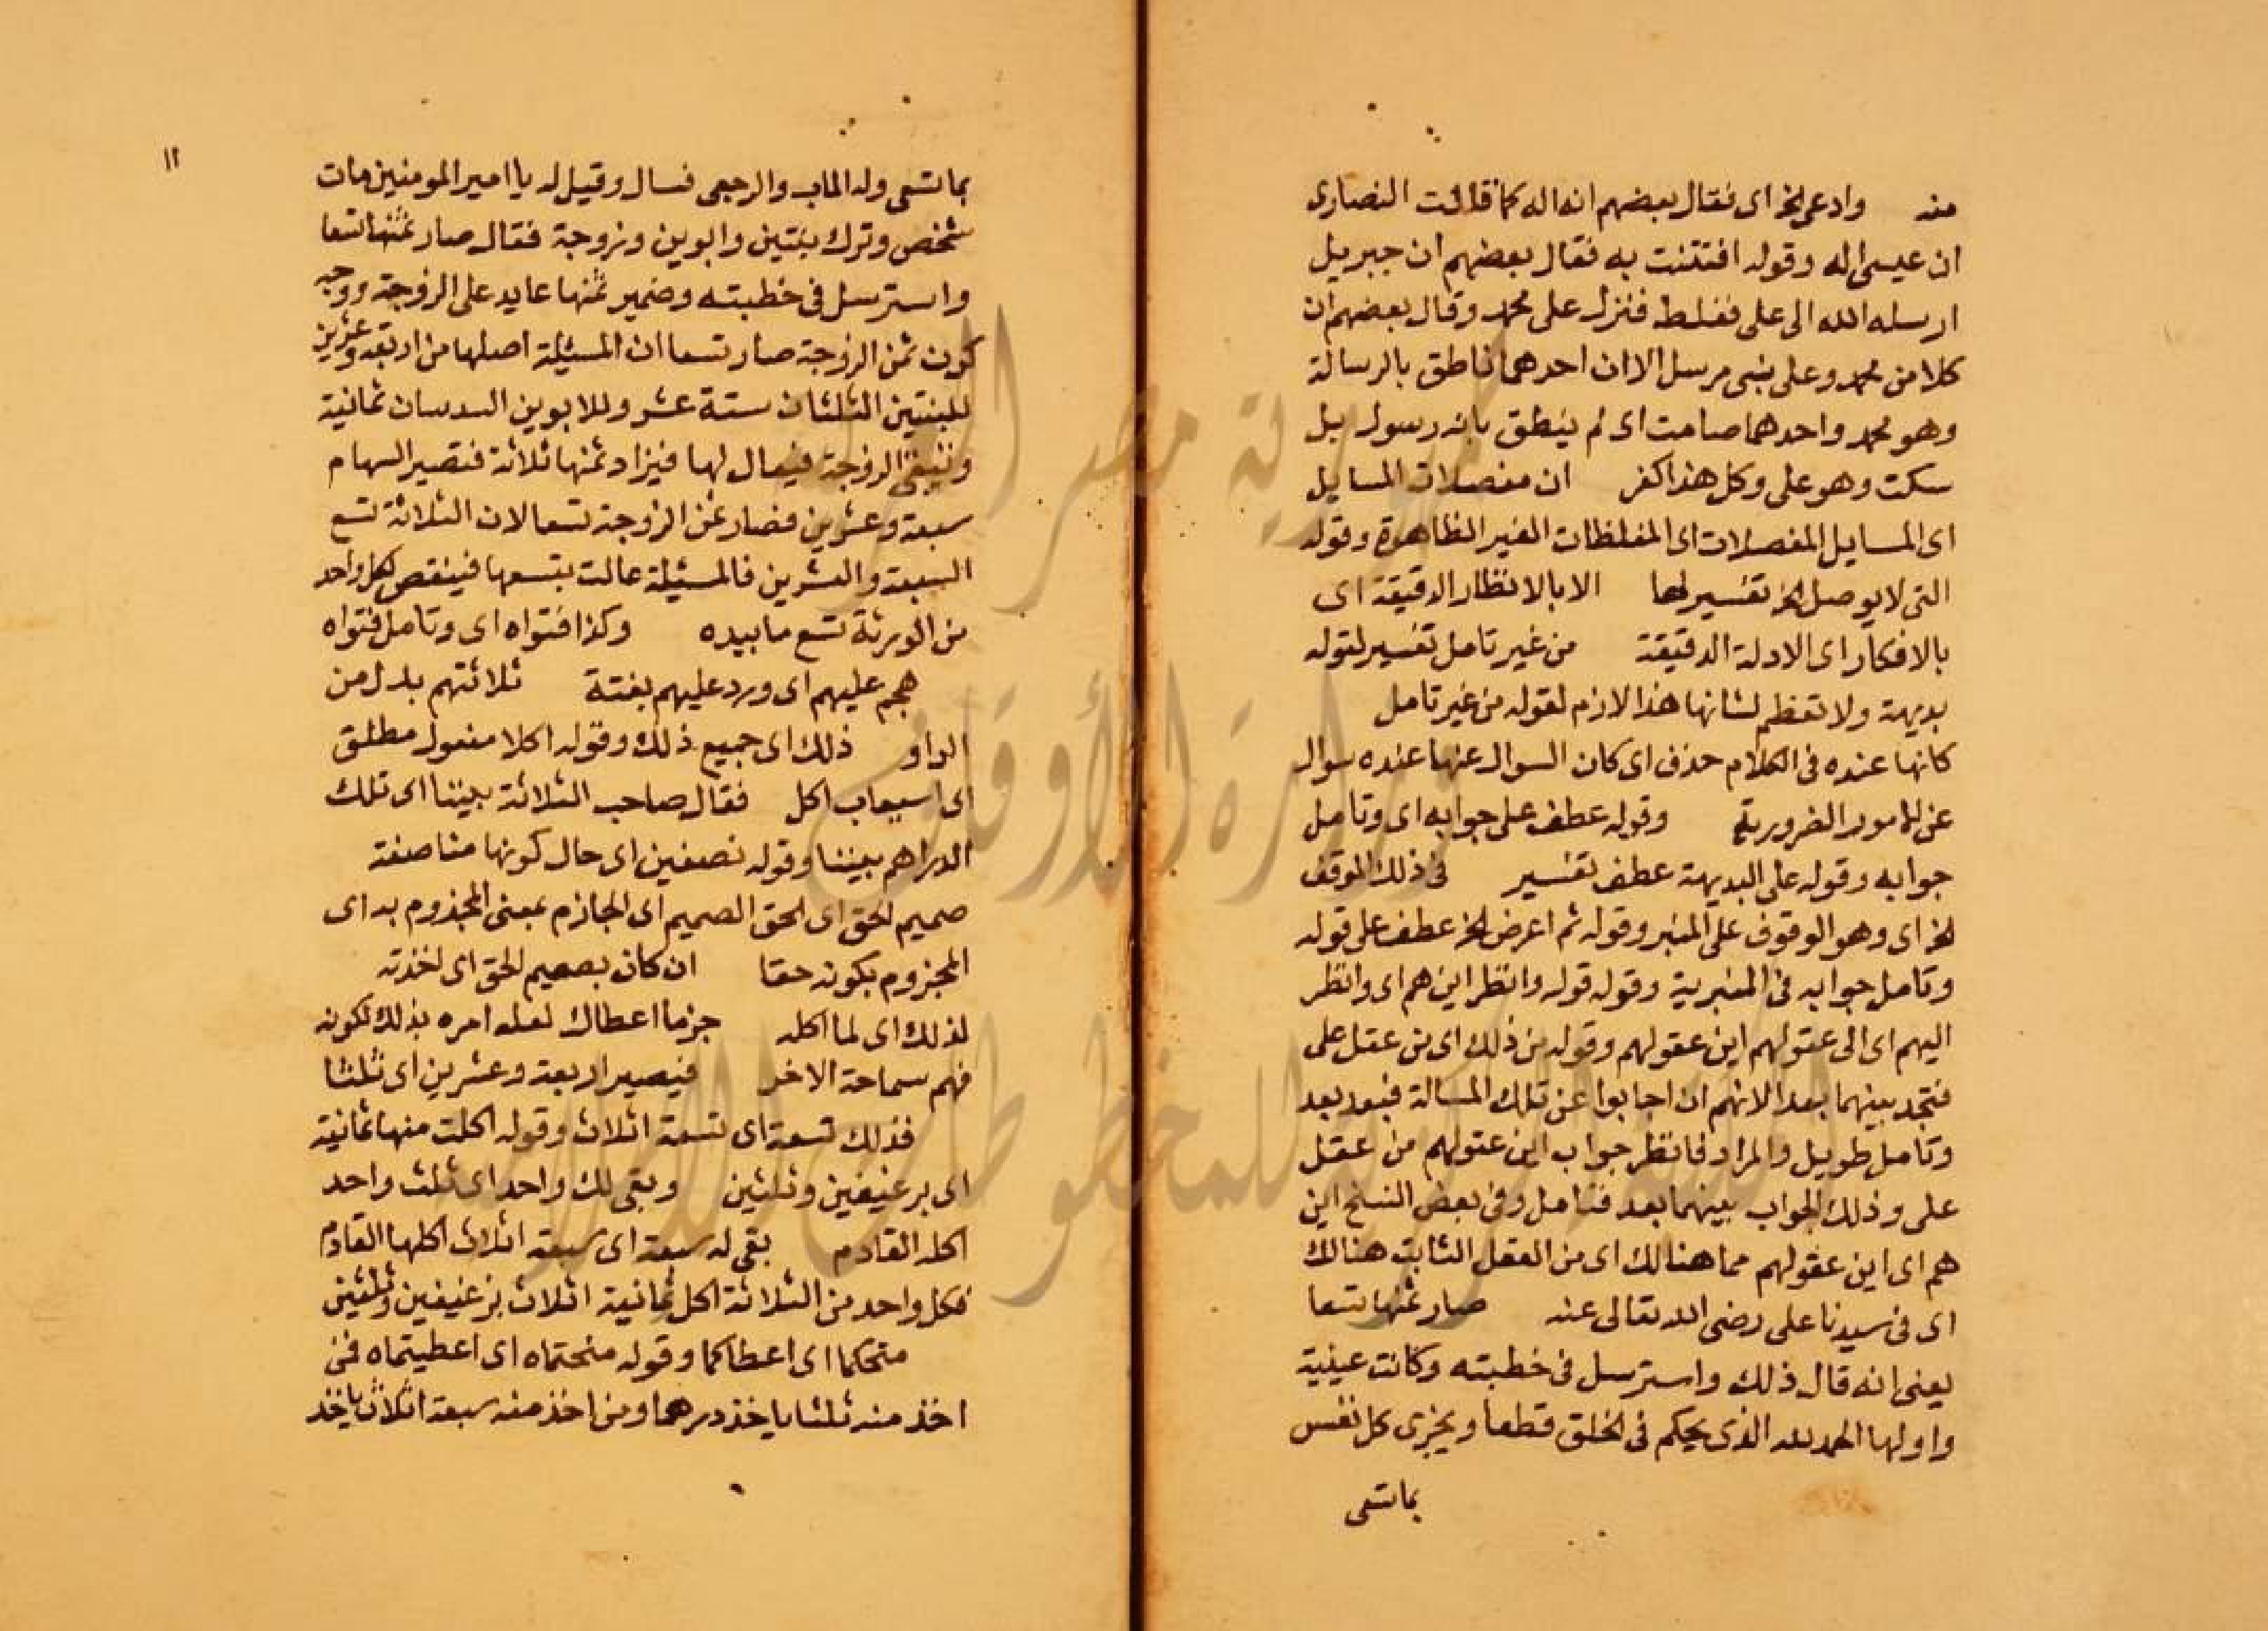 منه وادعى الخ اى فقال بعضهم انه اله كما قالت النصارى
ان عيسى اله وقوله افتتنت به فقال بعضهم ان جبريل
ارسله الله الى على فغلط فنزل على محمد وقال بعضهم ان
كلا من محمد وعلى نبى مرسل الا ان احدهما ناطق بالرسالة
وهو محمد واحدهما صامت اى لم ينطق بانه رسول بل
سكت وهو على وكل هذا كفر ان معضلات المسايل
اى المسايل المعضلات اى المغلظات الغير الظاهرة وقوله
التى لا يوصل الخ تفسير لها الا بالانظار الدقيقة اى
بالافكار اى الادلة الدقيقة من غير تامل تفسير لقوله
بديهة ولا تعظم لشانها هذا لازم لقوله من غير تامل
كانها عنده فى الكلام حذف اى كان السوال عنها عنده سوال
عن الامور الضرورية وقوله عطف على جوابه اى وتامل
جوابه وقوله على البديهة عطف تفسير فى ذلك الموقف
الخ اى وهو الوقوف على المنبر وقوله ثم اعرض الخ عطف على قوله
وتامل جوابه فى المنبرية وقوله قوله وانظر اين هم اى وانظر
اليهم اى الى عقولهم اين عقولهم وقوله من ذلك اى من عقل على
فتجد بينهما بعدا لانهم ان اجابوا عن تلك المسالة فبعد بعد
وتامل طويل والمراد فانظر جواب اين عقولهم من عقل
على وذلك الجواب بينهما بعد فتامل وفى بعض النسخ اين
هم اى اين عقولهم مما هنالك اى من العقل الثابت هنالك
اى فى سيدنا على رضى الله تعالى عنه صار ثمنها تسعا
يعنى انه قال ذلك واسترسل فى خطبته وكانت عينية
واولها الحمد لله الذى يحكم فى الخلق قطعا ويجزى كل نفس
بما تسعى
١١
بما تسعى وله الماب والرجعى فسال وقيل له يا امير المومنين مات
شخص وترك بنتين وابوين وزوجة فقال صار ثمنها تسعا
واسترسل فى خطبته وضمير ثمنها عايد على الزوجة ووجه
كون ثمن الزوجة صار تسعا ان المسئلة اصلها من اربعة وعشرين
للبنتين الثلثان ستة عشر وللابوين السدسان ثمانية
وتبقى الزوجة فيعال لها فيزاد ثمنها ثلاثة فتصير السهام
سبعة وعشرين فصار ثمن الزوجة تسعا لان الثلاثة تسع
السبعة والعشرين فالمسئلة عالت بتسعها فينقص لكل واحد
من الورثة تسع ما بيده وكذا فتواه اى وتامل فتواه
هجم عليهم اى ورد عليهم بغتة ثلاثتهم بدل من
الواو ذلك اى جميع ذلك وقوله اكلا مفعول مطلق
اى اسيعاب اكل فقال صاحب الثلاثة بيننا اى تلك
الدراهم بيننا وقوله نصفين اى حال كونها مناصفة
صميم الحق اى الحق الصميم اى الجازم بمعنى المجزوم به اى
المجزوم بكونه حقا ان كان بصميم الحق اى اخذته
لذلك اى لما اكله جزما اعطاك لعله امره بذلك لكونه
فهم سماحة الاخر فيصير اربعة وعشرين اى ثلثا
فذلك تسعة اى تسعة اثلاث وقوله اكلت منها ثمانية
اى برغيفين وثلثين وبقى لك واحد اى ثلث واحد
اكله القادم بقى له سبعة اى سبعة اثلاث اكلها القادم
فكل واحد من الثلاثة اكل ثمانية اثلاث برغيفين وثلثين
منحكما اى اعطاكما وقوله منحتماه اى اعطيتماه فمن
اخذ منه ثلثا ياخذ درهما ومن اخذ منه سبعة اثلاث ياخذ